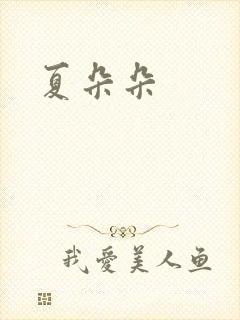 夏朵朵
我爱美人鱼